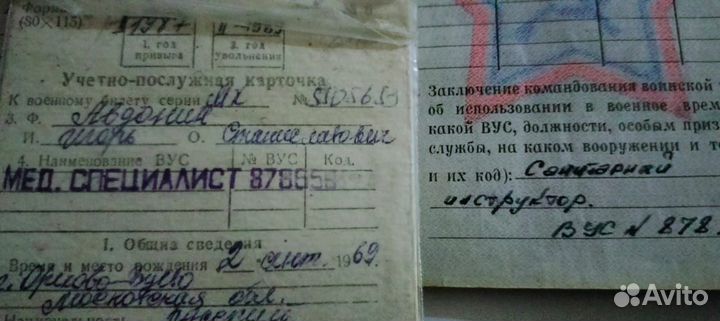 Форма
(80×115)
1987
II-1989
1. год
призыва
2. год
увольнения
Учетно-послужная карточка
К военному билету серии МХ №
3. Ф. Авдонин
И. Игорь О. Станиславович
4. Наименование ВУС № ВУС Код.
МЕД. СПЕЦИАЛИСТ 878658
I. Общие сведения
Время и место рождения 2 сент. 1969.
г. Орехово-Зуево
Московская обл.
Национальность русский
Заключение командования воинской
об использовании в военное врем
какой ВУС, должности, особым приз
службы, на каком вооружении и те
и их код): Санитарный
инструктор.
ВУС № 878
Avito